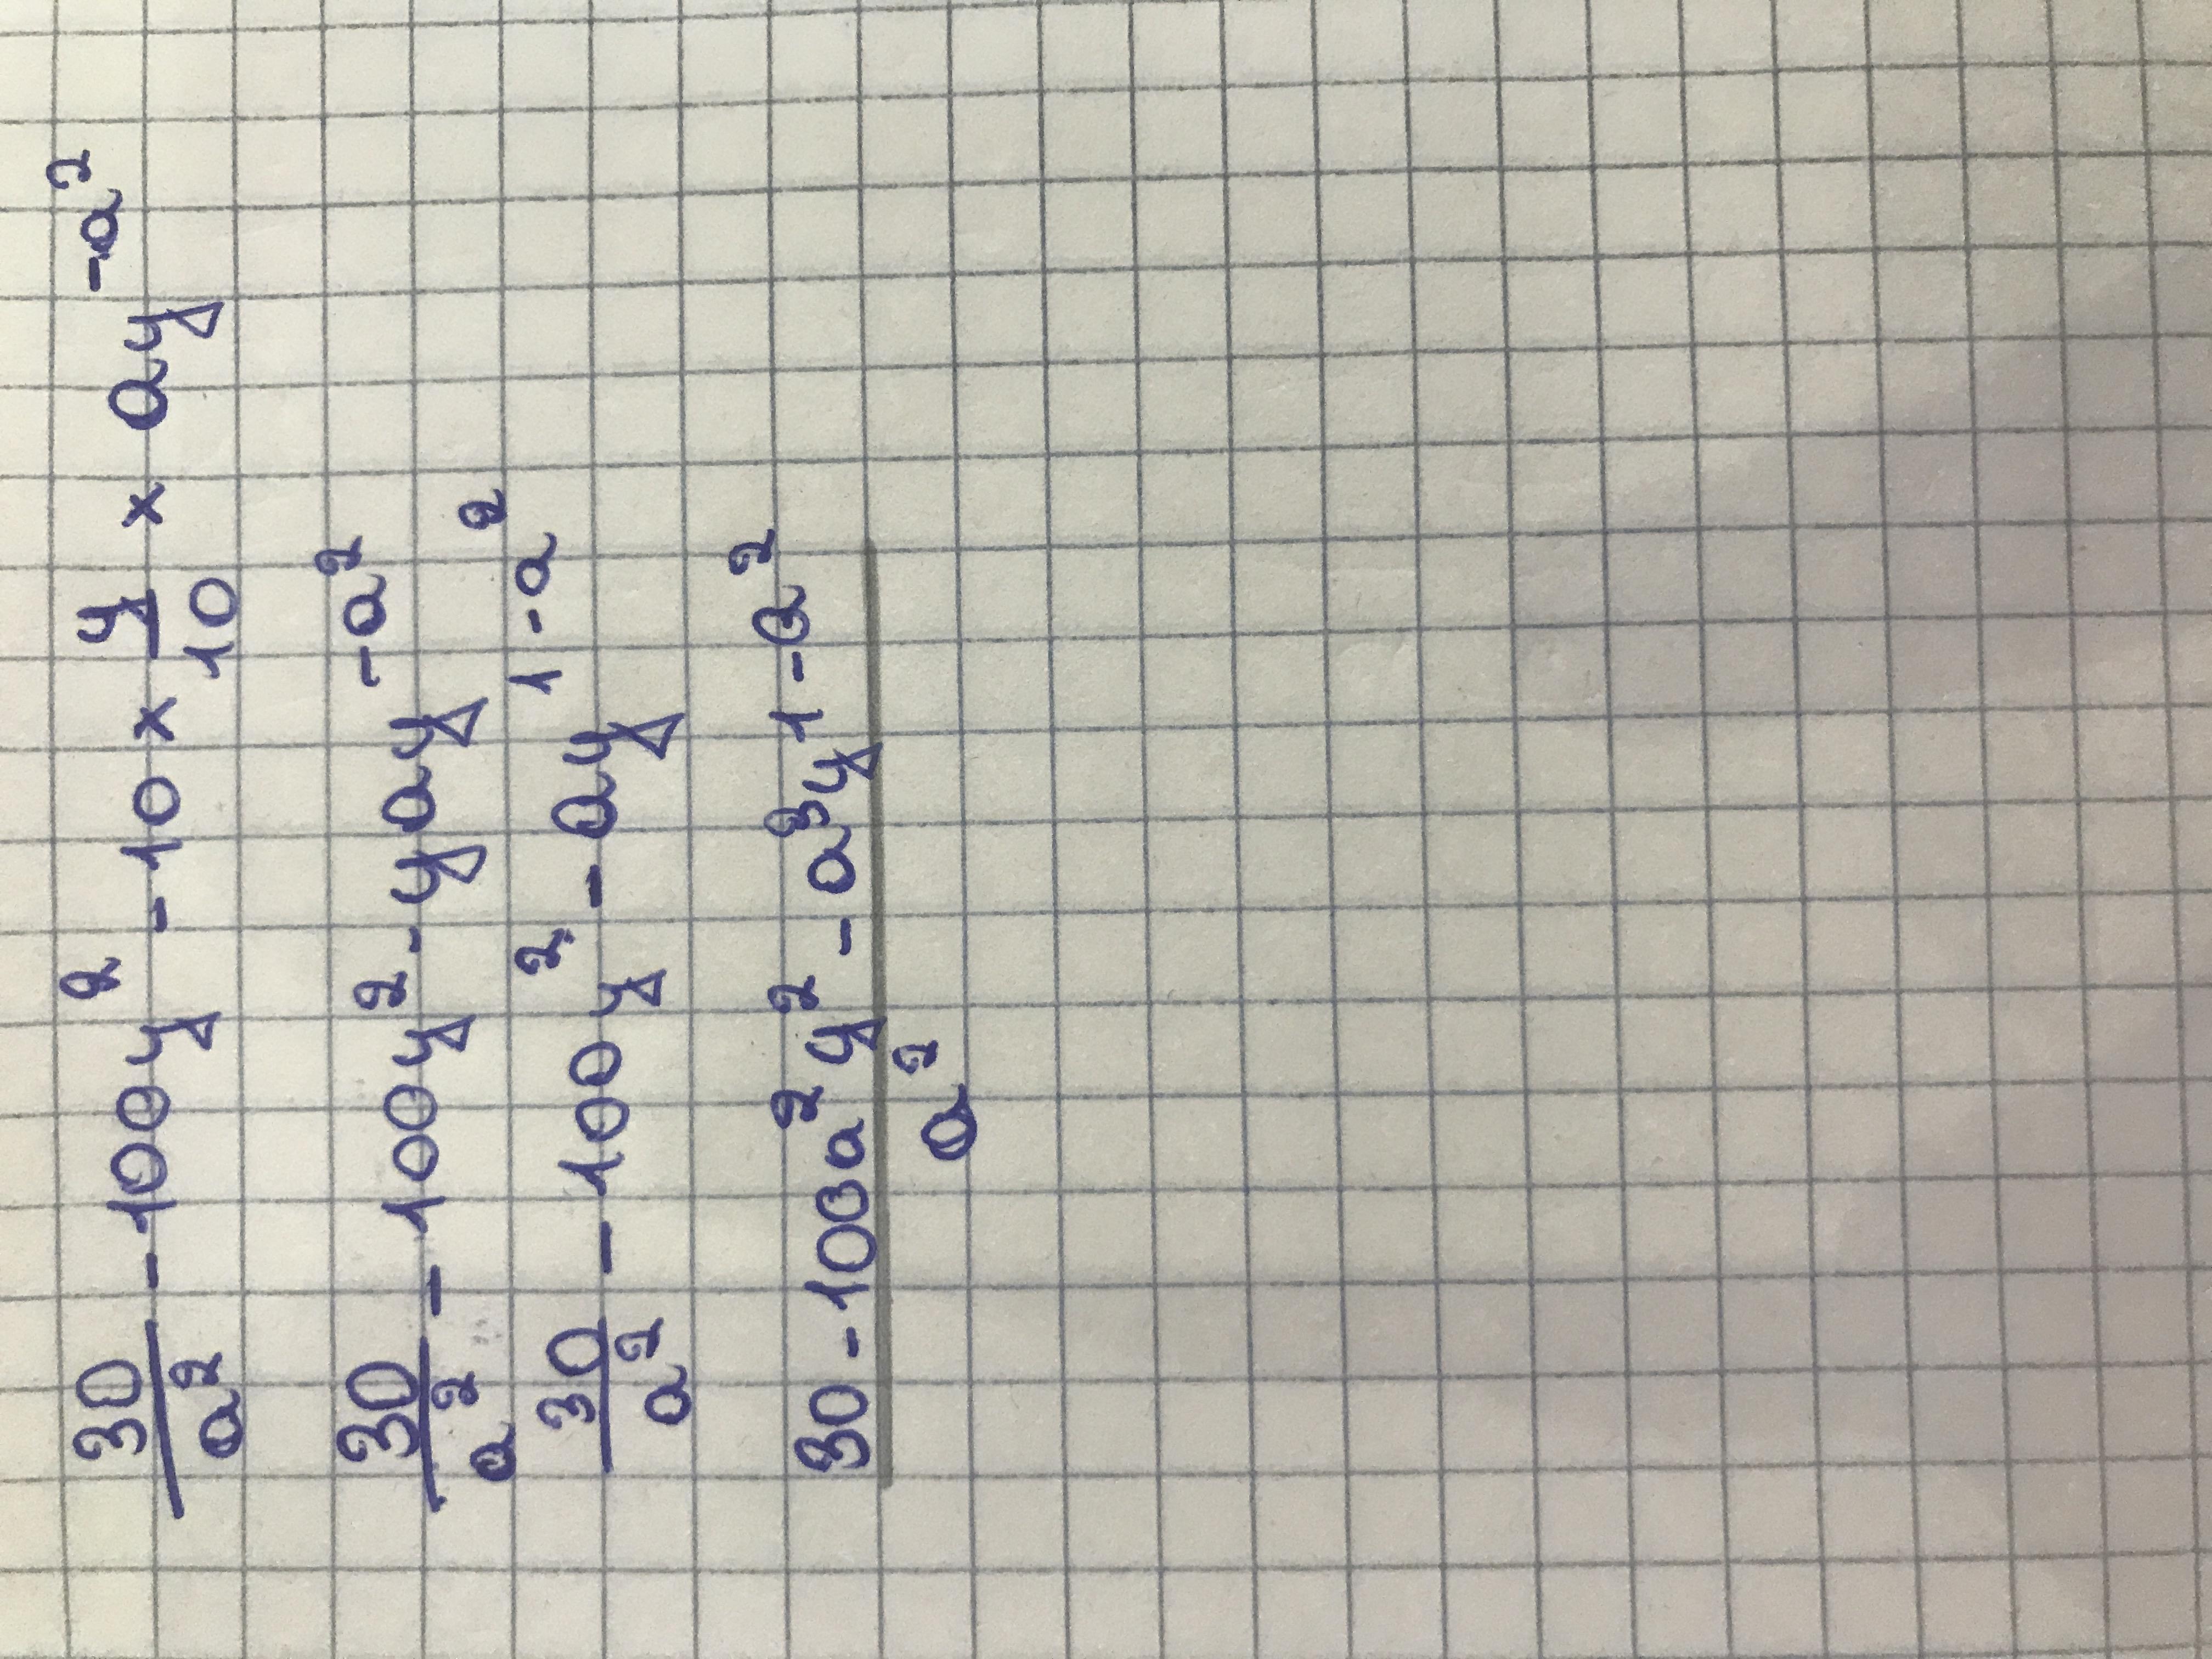 30/a² - 100y² - 10 × y/10 × ay^(-a²)
30/a² - 100y² - yay^(-a²)
30/a² - 100y² - ay^(1-a²)
(30 - 100a²y² - a³y^(1-a²))/a²